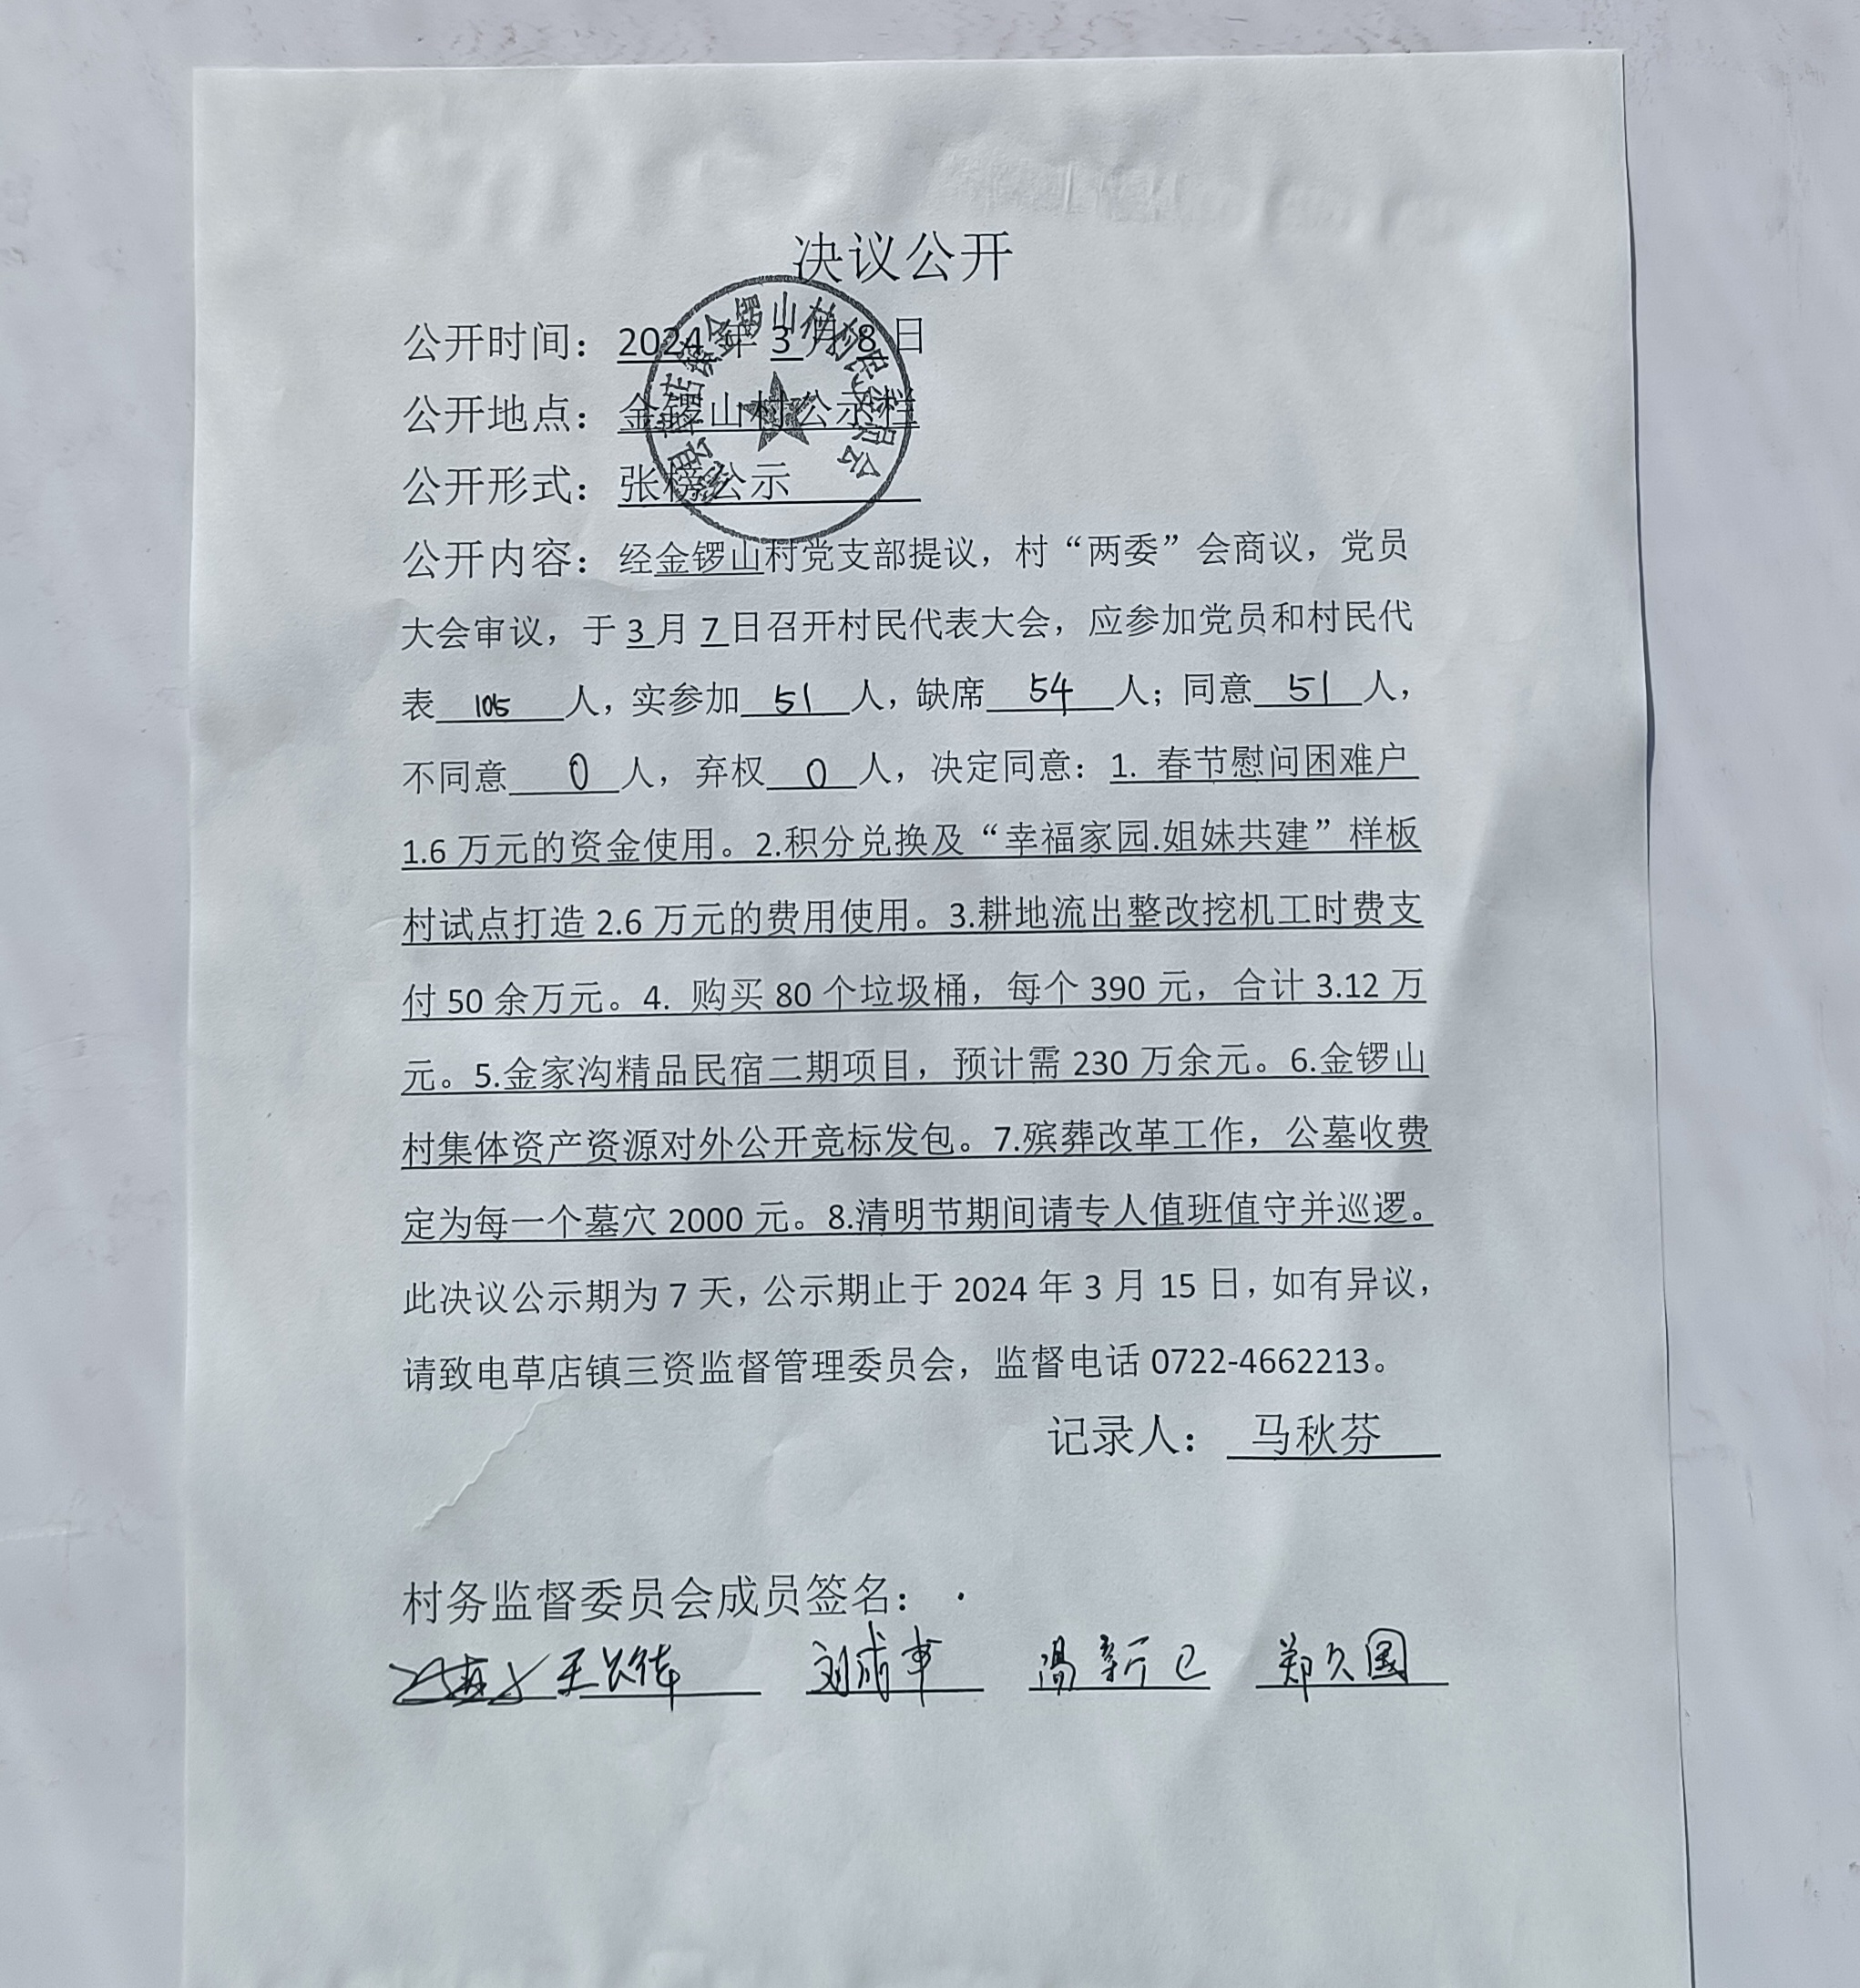 决议公开
公开时间：2024 年 3 月 8 日
公开地点：金锣山村公示栏
公开形式：张榜公示
公开内容：经金锣山村党支部提议，村“两委”会商议，党员
大会审议，于 3 月 7 日召开村民代表大会，应参加党员和村民代
表 105 人，实参加 51 人，缺席 54 人；同意 51 人，
不同意 0 人，弃权 0 人，决定同意：1. 春节慰问困难户
1.6 万元的资金使用。2.积分兑换及“幸福家园.姐妹共建”样板
村试点打造 2.6 万元的费用使用。3.耕地流出整改挖机工时费支
付 50 余万元。4. 购买 80 个垃圾桶，每个 390 元，合计 3.12 万
元。5.金家沟精品民宿二期项目，预计需 230 万余元。6.金锣山
村集体资产资源对外公开竞标发包。7.殡葬改革工作，公墓收费
定为每一个墓穴 2000 元。8.清明节期间请专人值班值守并巡逻。
此决议公示期为 7 天，公示期止于 2024 年 3 月 15 日，如有异议，
请致电草店镇三资监督管理委员会，监督电话 0722-4662213。
记录人： 马秋芬
村务监督委员会成员签名：
刘成军 冯新之 郑久国
金锣山村村民委员会